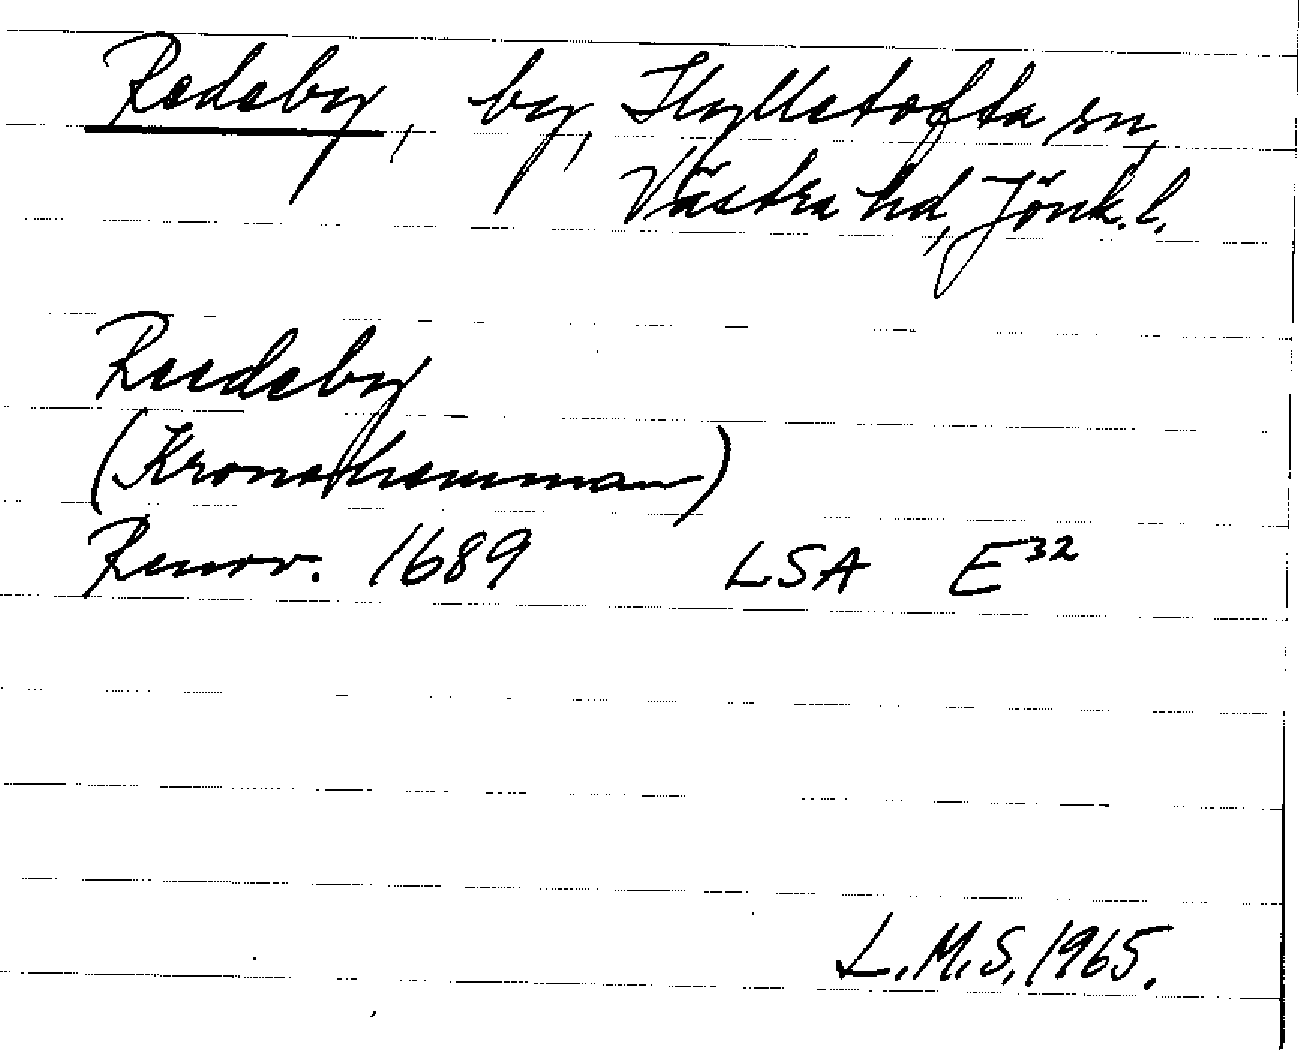 Redeby, by, Hylletofta sn,
Västra hd, Jönk. l.
Reedeby
(Kronohemman)
Renov. 1689 LSA E32
L.M.S. 1965.